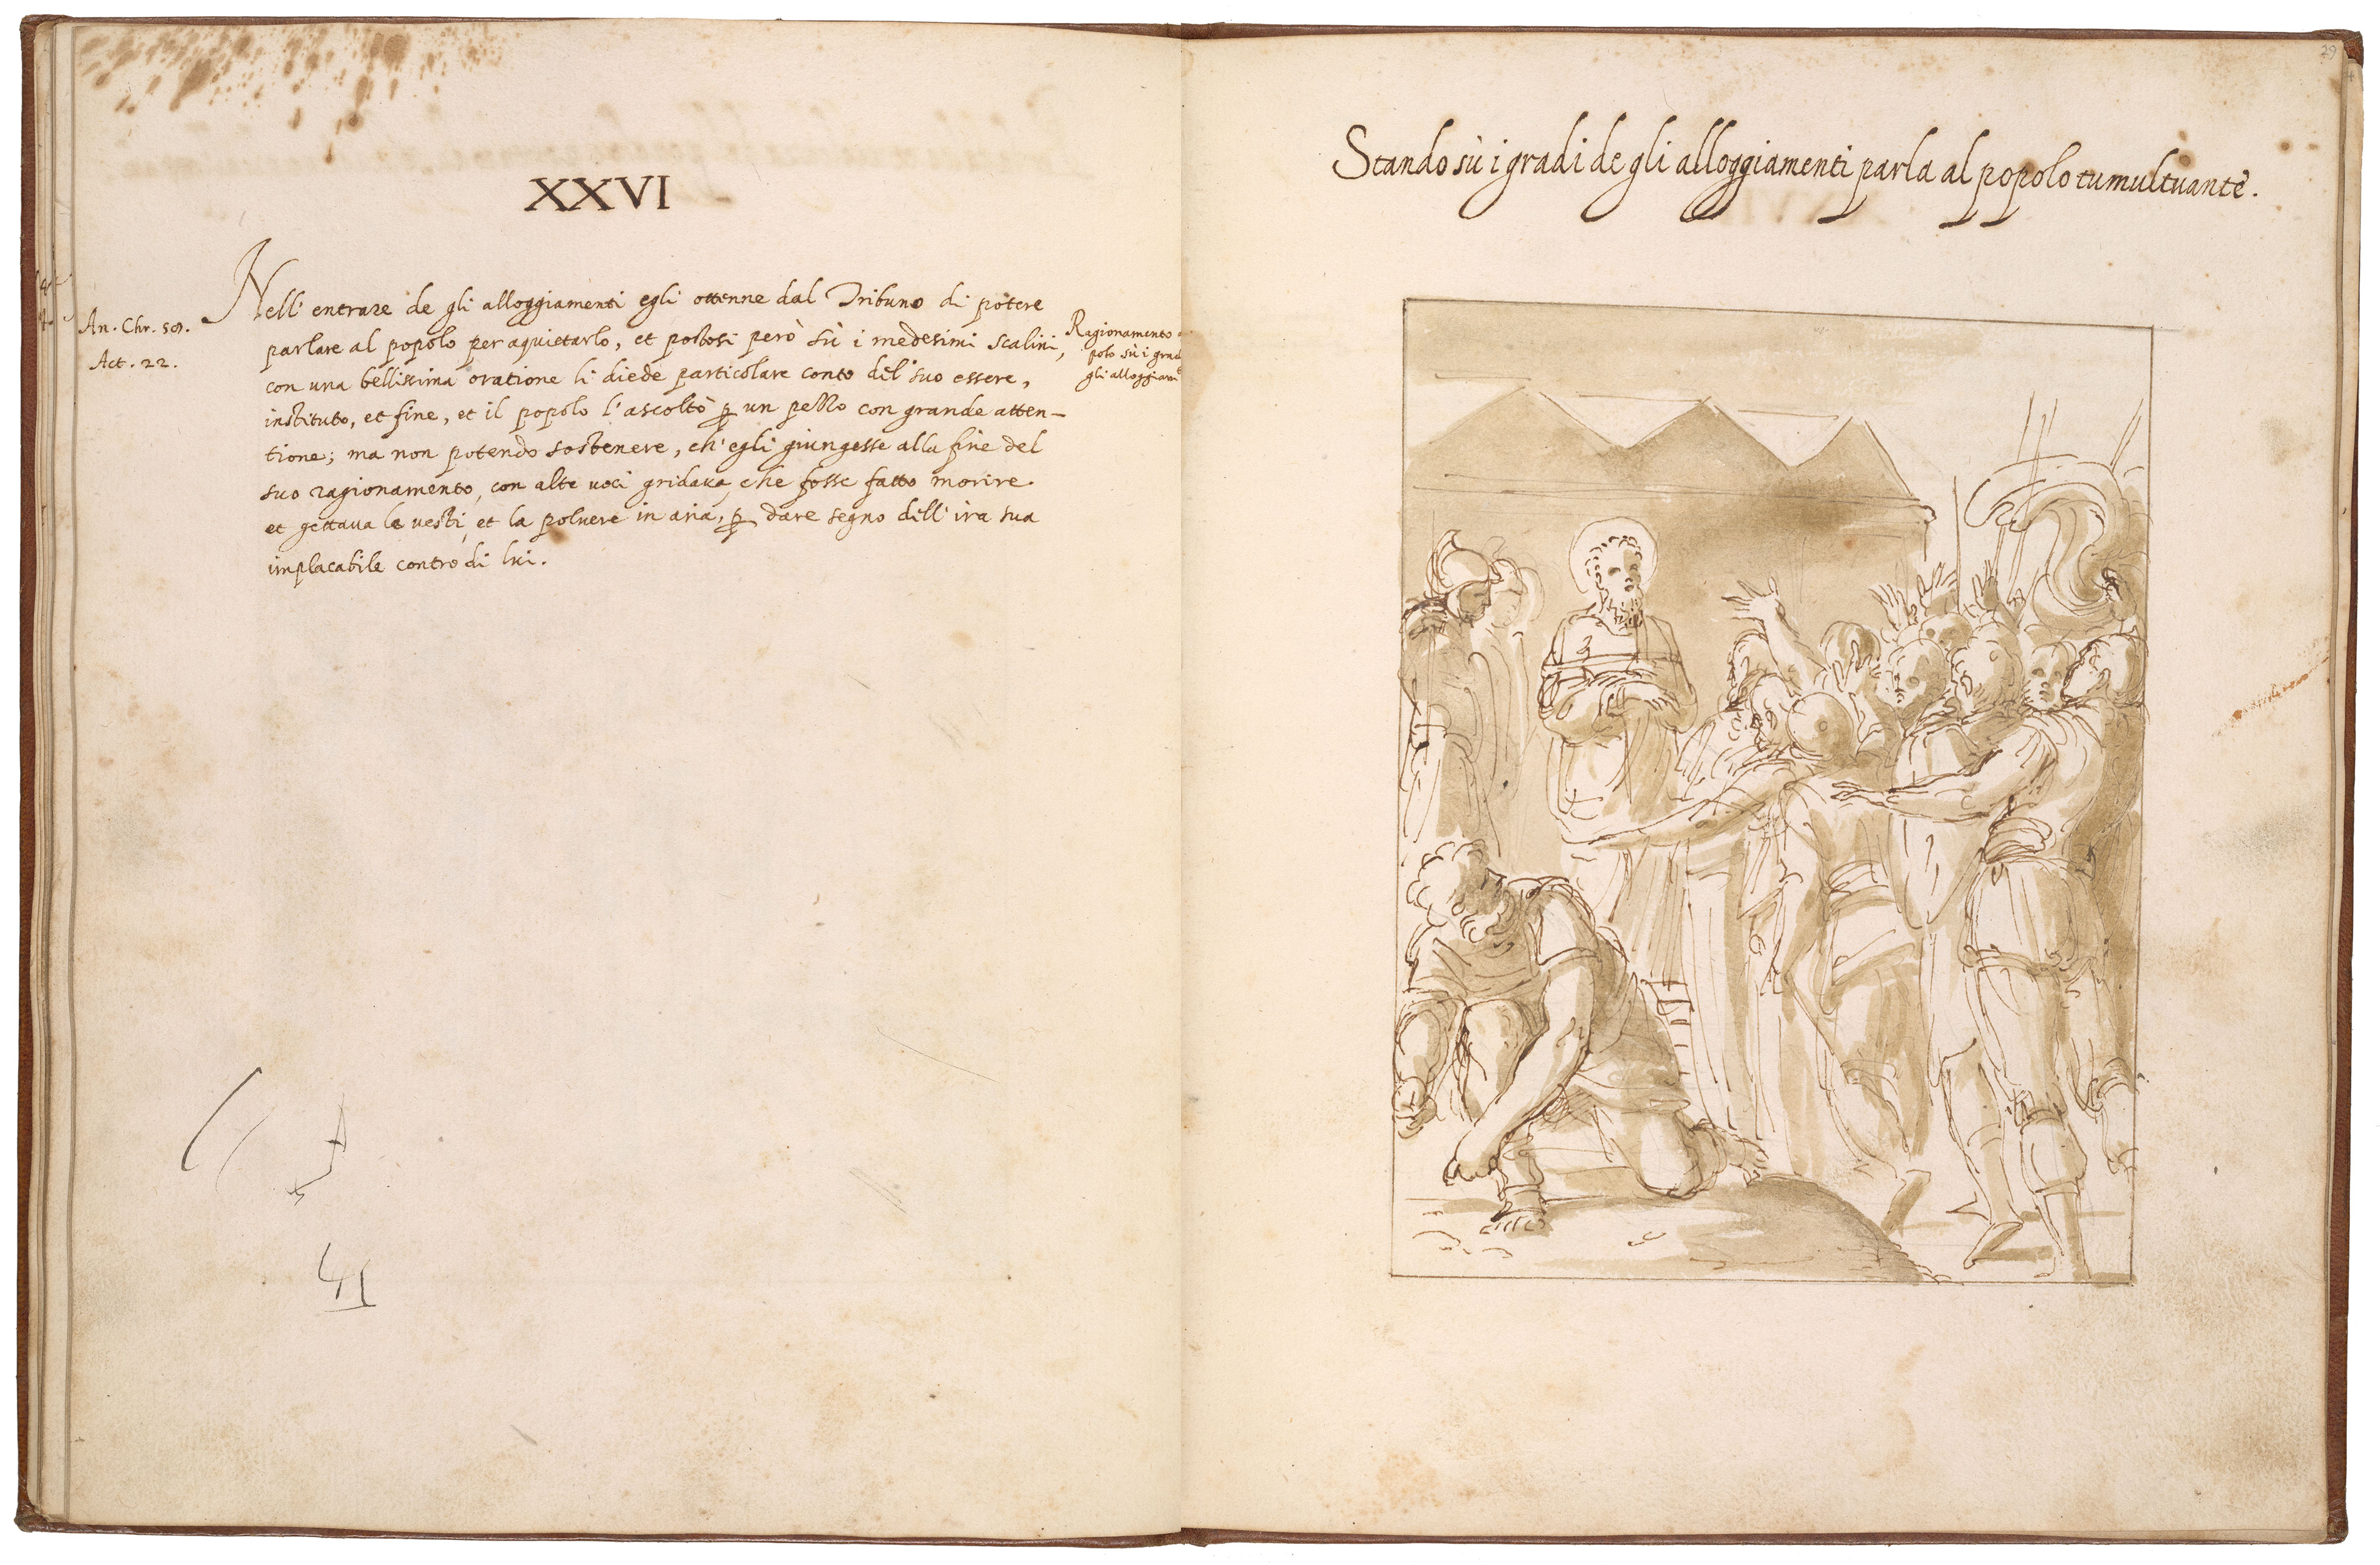 XXVI
An. Chr. 59.
Act. 22.
Nell' entrare de gli alloggiamenti egli ottenne dal Tribuno di potere
parlare al popolo per aquietarlo, et postosi però sù i medesimi scalini,
con una bellissima oratione li diede particolare conto del suo essere,
instituto, et fine, et il popolo l'ascoltò ꝑ un pezzo con grande atten-
tione; ma non potendo sostenere, ch' egli giungesse alla fine del
suo ragionamento, con alte uoci gridaua, che fosse fatto morire.
et gettaua le uesti, et la poluere in aria, ꝑ dare segno dell' ira sua
implacabile contro di lui.
Ragionamento
polo sù i grad
gli alloggiam
29
Stando sù i gradi de gli alloggiamenti parla al popolo tumultuante.